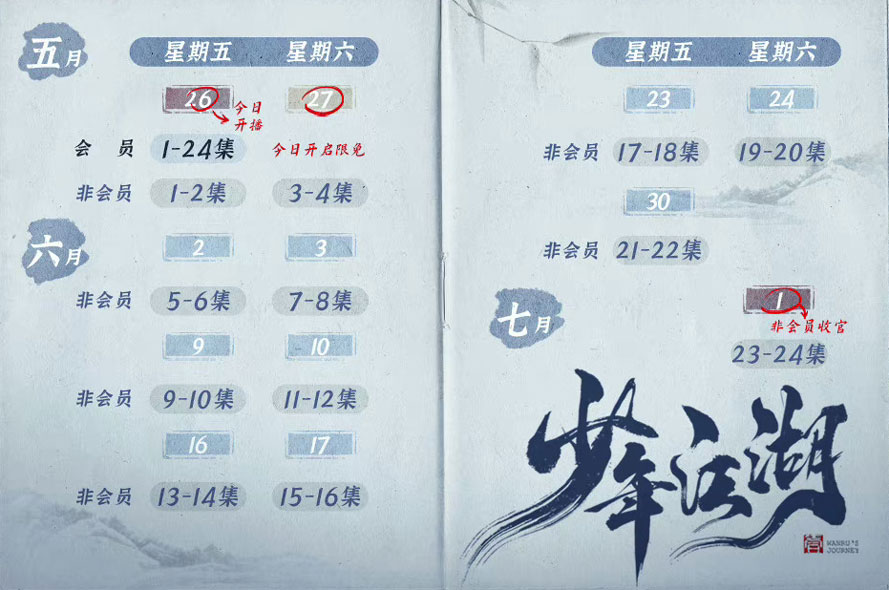 五月
星期五 星期六
26 27
今日
开播
会 员 1-24集 今日开启限免
非会员 1-2集 3-4集
六月
2 3
非会员 5-6集 7-8集
9 10
非会员 9-10集 11-12集
16 17
非会员 13-14集 15-16集
星期五 星期六
23 24
非会员 17-18集 19-20集
30
非会员 21-22集
七月
1
非会员收官
23-24集
少年江湖
WANRU'S
JOURNEY